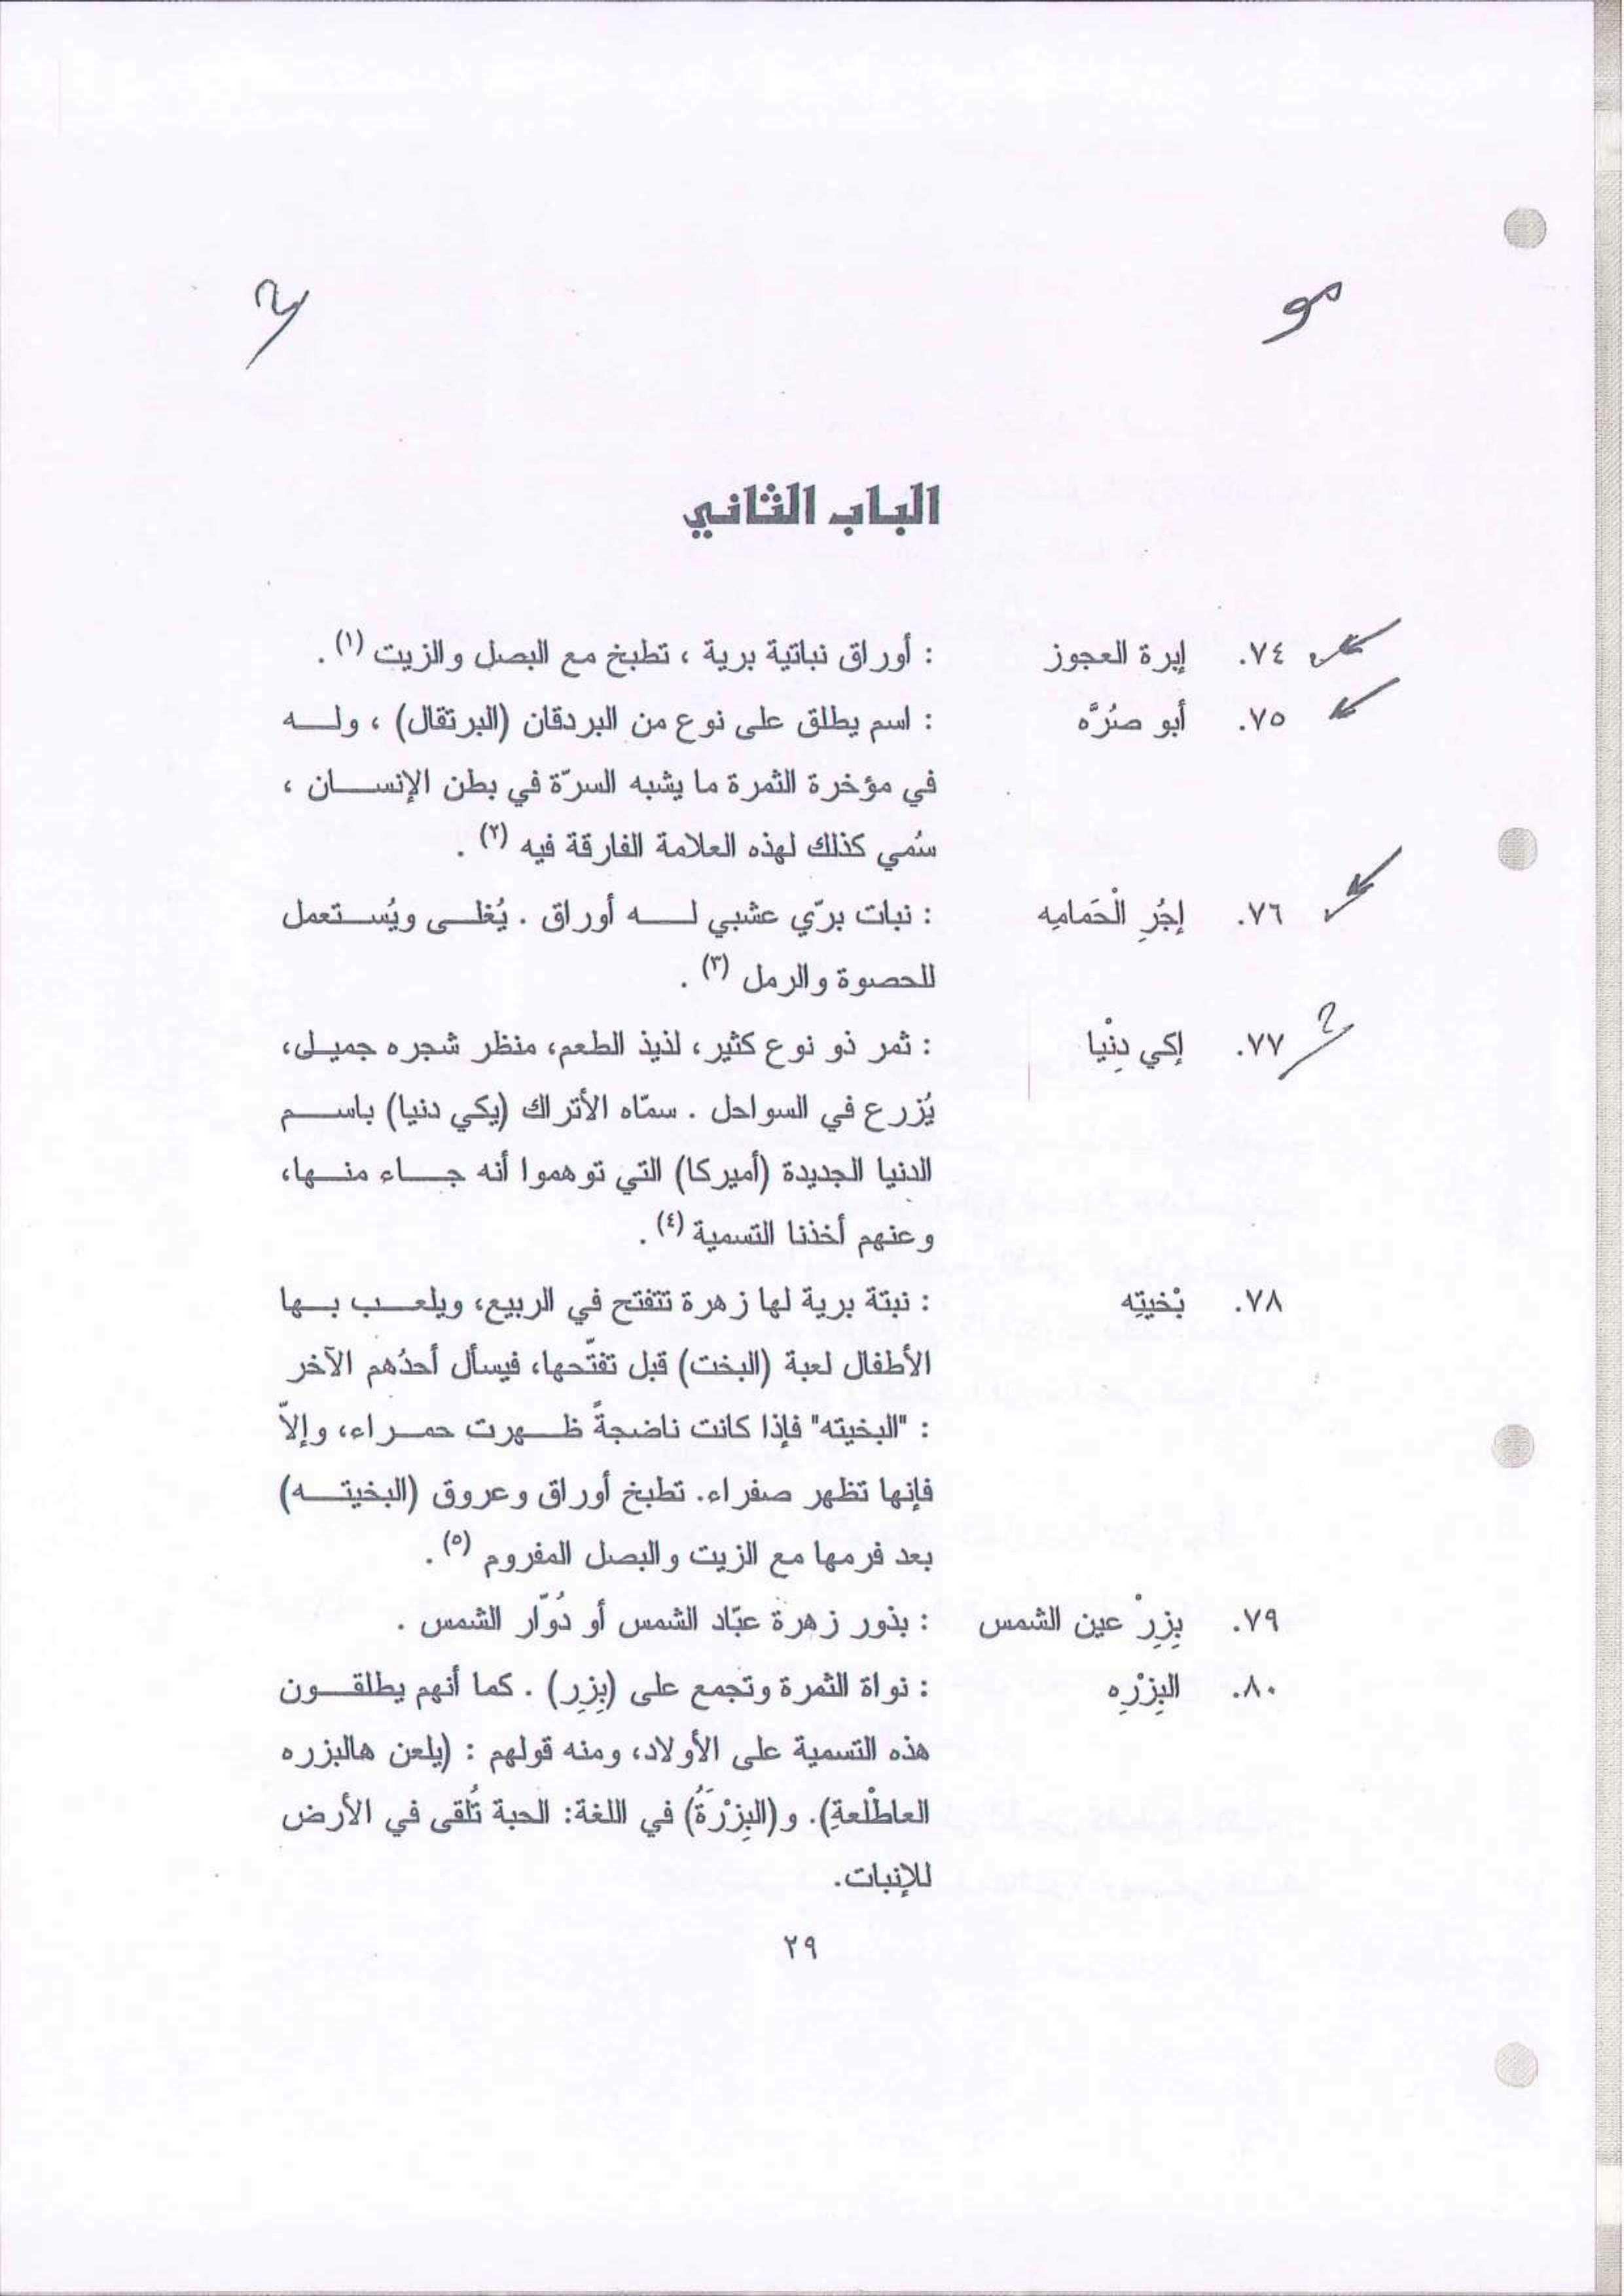 الباب الثاني
٧٤. إبرة العجوز : أوراق نباتية برية ، تطبخ مع البصل والزيت (١) .
٧٥. أبو صُرَّه : اسم يطلق على نوع من البردقان (البرتقال) ، وله
في مؤخرة الثمرة ما يشبه السرّة في بطن الإنسان ،
سُمي كذلك لهذه العلامة الفارقة فيه (٢) .
٧٦. إجُرِ الْحَمامِه : نبات برّي عشبي له أوراق . يُغلى ويُستعمل
للحصوة والرمل (٣) .
٧٧. إكي دِنْيا : ثمر ذو نوع كثير، لذيذ الطعم، منظر شجره جميل،
يُزرع في السواحل . سمّاه الأتراك (يكي دنيا) باسم
الدنيا الجديدة (أميركا) التي توهموا أنه جاء منها،
وعنهم أخذنا التسمية (٤) .
٧٨. بْخيتِه : نبتة برية لها زهرة تتفتح في الربيع، ويلعب بها
الأطفال لعبة (البخت) قبل تفتّحها، فيسأل أحدُهم الآخر
: "البخيته" فإذا كانت ناضجةً ظهرت حمراء، وإلاّ
فإنها تظهر صفراء. تطبخ أوراق وعروق (البخيته)
بعد فرمها مع الزيت والبصل المفروم (٥) .
٧٩. بِزِرْ عين الشمس : بذور زهرة عبّاد الشمس أو دُوّار الشمس .
٨٠. البِزْرِه : نواة الثمرة وتجمع على (بِزِر) . كما أنهم يطلقون
هذه التسمية على الأولاد، ومنه قولهم : (يلعن هالبزره
العاطْلعةِ). و(البِزْرَةُ) في اللغة: الحبة تُلقى في الأرض
للإنبات.
٢٩